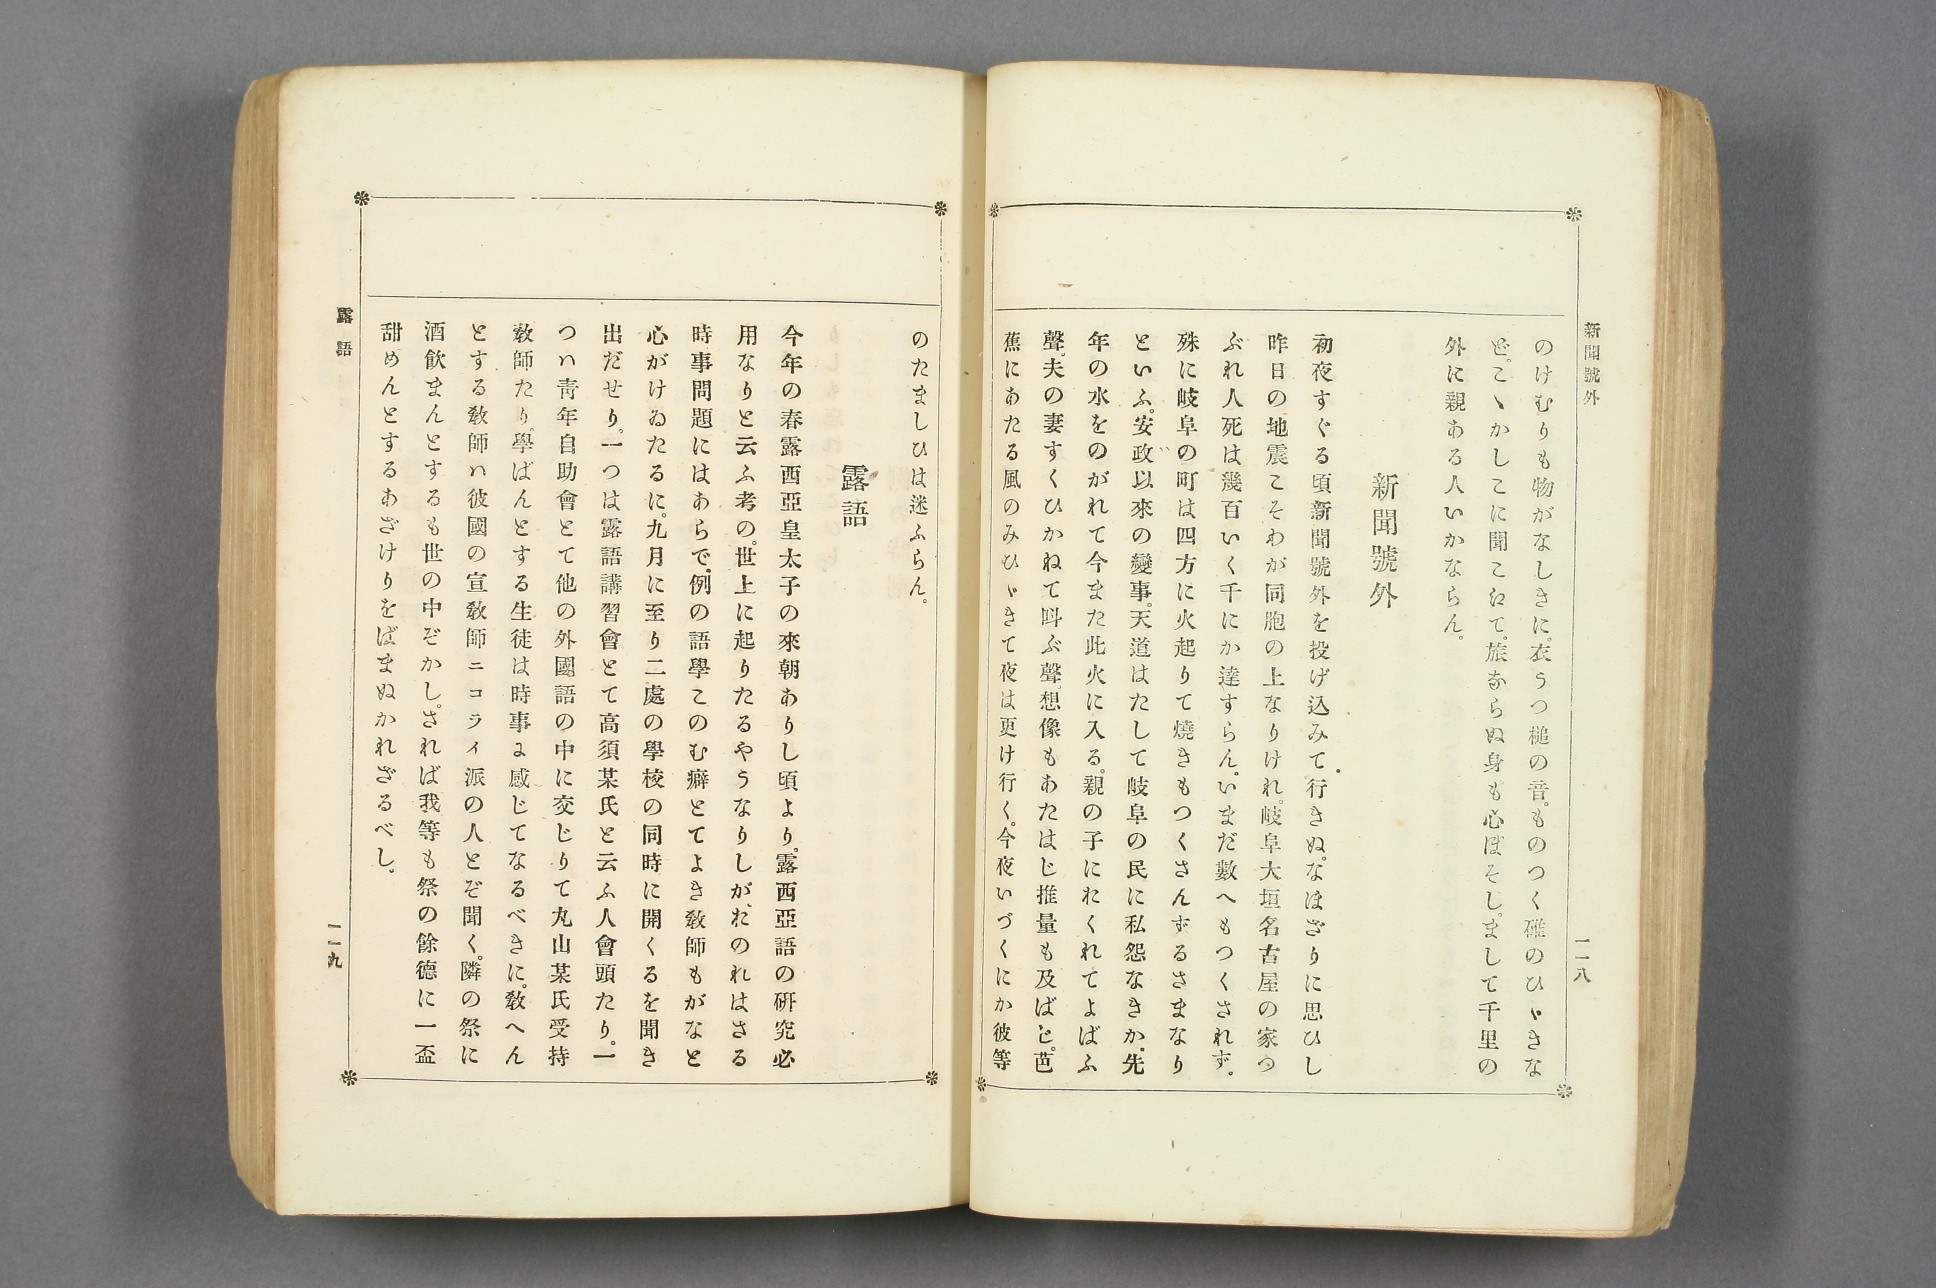 新聞號外
一一八
のけむりも物がなしきに。衣うつ槌の音。ものつく碓のひゞきな
ど。こゝかしこに聞こえて。旅ならぬ身も心ぼそし。まして千里の
外に親ある人いかならん。
新聞號外
初夜すぐる頃新聞號外を投げ込みて行きぬ。なほざりに思ひし
昨日の地震こそわが同胞の上なりけれ。岐阜大垣名古屋の家つ
ぶれ人死は幾百いく千にか達すらん。いまだ數へもつくされず。
殊に岐阜の町は四方に火起りて燒きもつくさんずるさまなり
といふ。安政以來の變事。天道はたして岐阜の民に私怨なきか。先
年の水をのがれて今また此火に入る。親の子におくれてよばふ
聲。夫の妻すくひかねて呌ぶ聲。想像もあたはじ推量も及ばじ。芭
蕉にあたる風のみひゞきて夜は更け行く。今夜いづくにか彼等
のたましひは迷ふらん。
露語
今年の春露西亞皇太子の來朝ありし頃より。露西亞語の研究必
用なりと云ふ考の。世上に起りたるやうなりしが、おのれはさる
時事問題にはあらで、例の語學このむ癖とてよき敎師もがなと
心がけゐたるに。九月に至り二處の學校の同時に開くるを聞き
出だせり。一つは露語講習會とて高須某氏と云ふ人會頭たり。一
つハ靑年自助會とて他の外國語の中に交じりて丸山某氏受持
敎師たり。學ばんとする生徒は時事に感じてなるべきに。敎へん
とする敎師ハ彼國の宣敎師ニコライ派の人とぞ聞く。隣の祭に
酒飮まんとするも世の中ぞかし。されば我等も祭の餘德に一盃
甜めんとするあざけりをばまぬかれざるべし。
露語
一一九